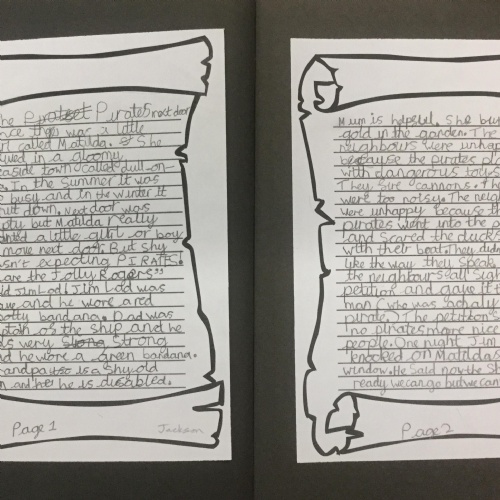 he Pirates next door
nce there was a little
rl called Matilda. She
lived in a gloomy
easide town called dull-on-
. In the Summer it was
busy and in the winter it
hut down. Next door was
pty but Matilda really
anted a little girl or boy
move next door. But shy
asn't ecpecting PIRATE
are the Jolly Rogers"
id Jim Lad. Jim Lad was
and he wore a red
otty bandana. Dad was
ptain of the ship and he
as very Strong
nd he wore a green bandana.
randpa is a shy old
n and he is disabled.
Page 1
Jackson
Mum is helpful. She bur
gold in the garden. The
neighbours were unhap
because the pirates pl
with dangerous toys
They fire cannons.
were too noisy. The neig
were unhappy because th
pirates went into the p
and scared the ducks
with their boats. They did
like the way they speak
the neighbours all sig
petition and gave it t
man (who was achaly
pirate.) The petition s
no pirates more nice
people. One night Jim
knocked on Matilda
window. He Said now the s
ready we can go but we can
Page 2